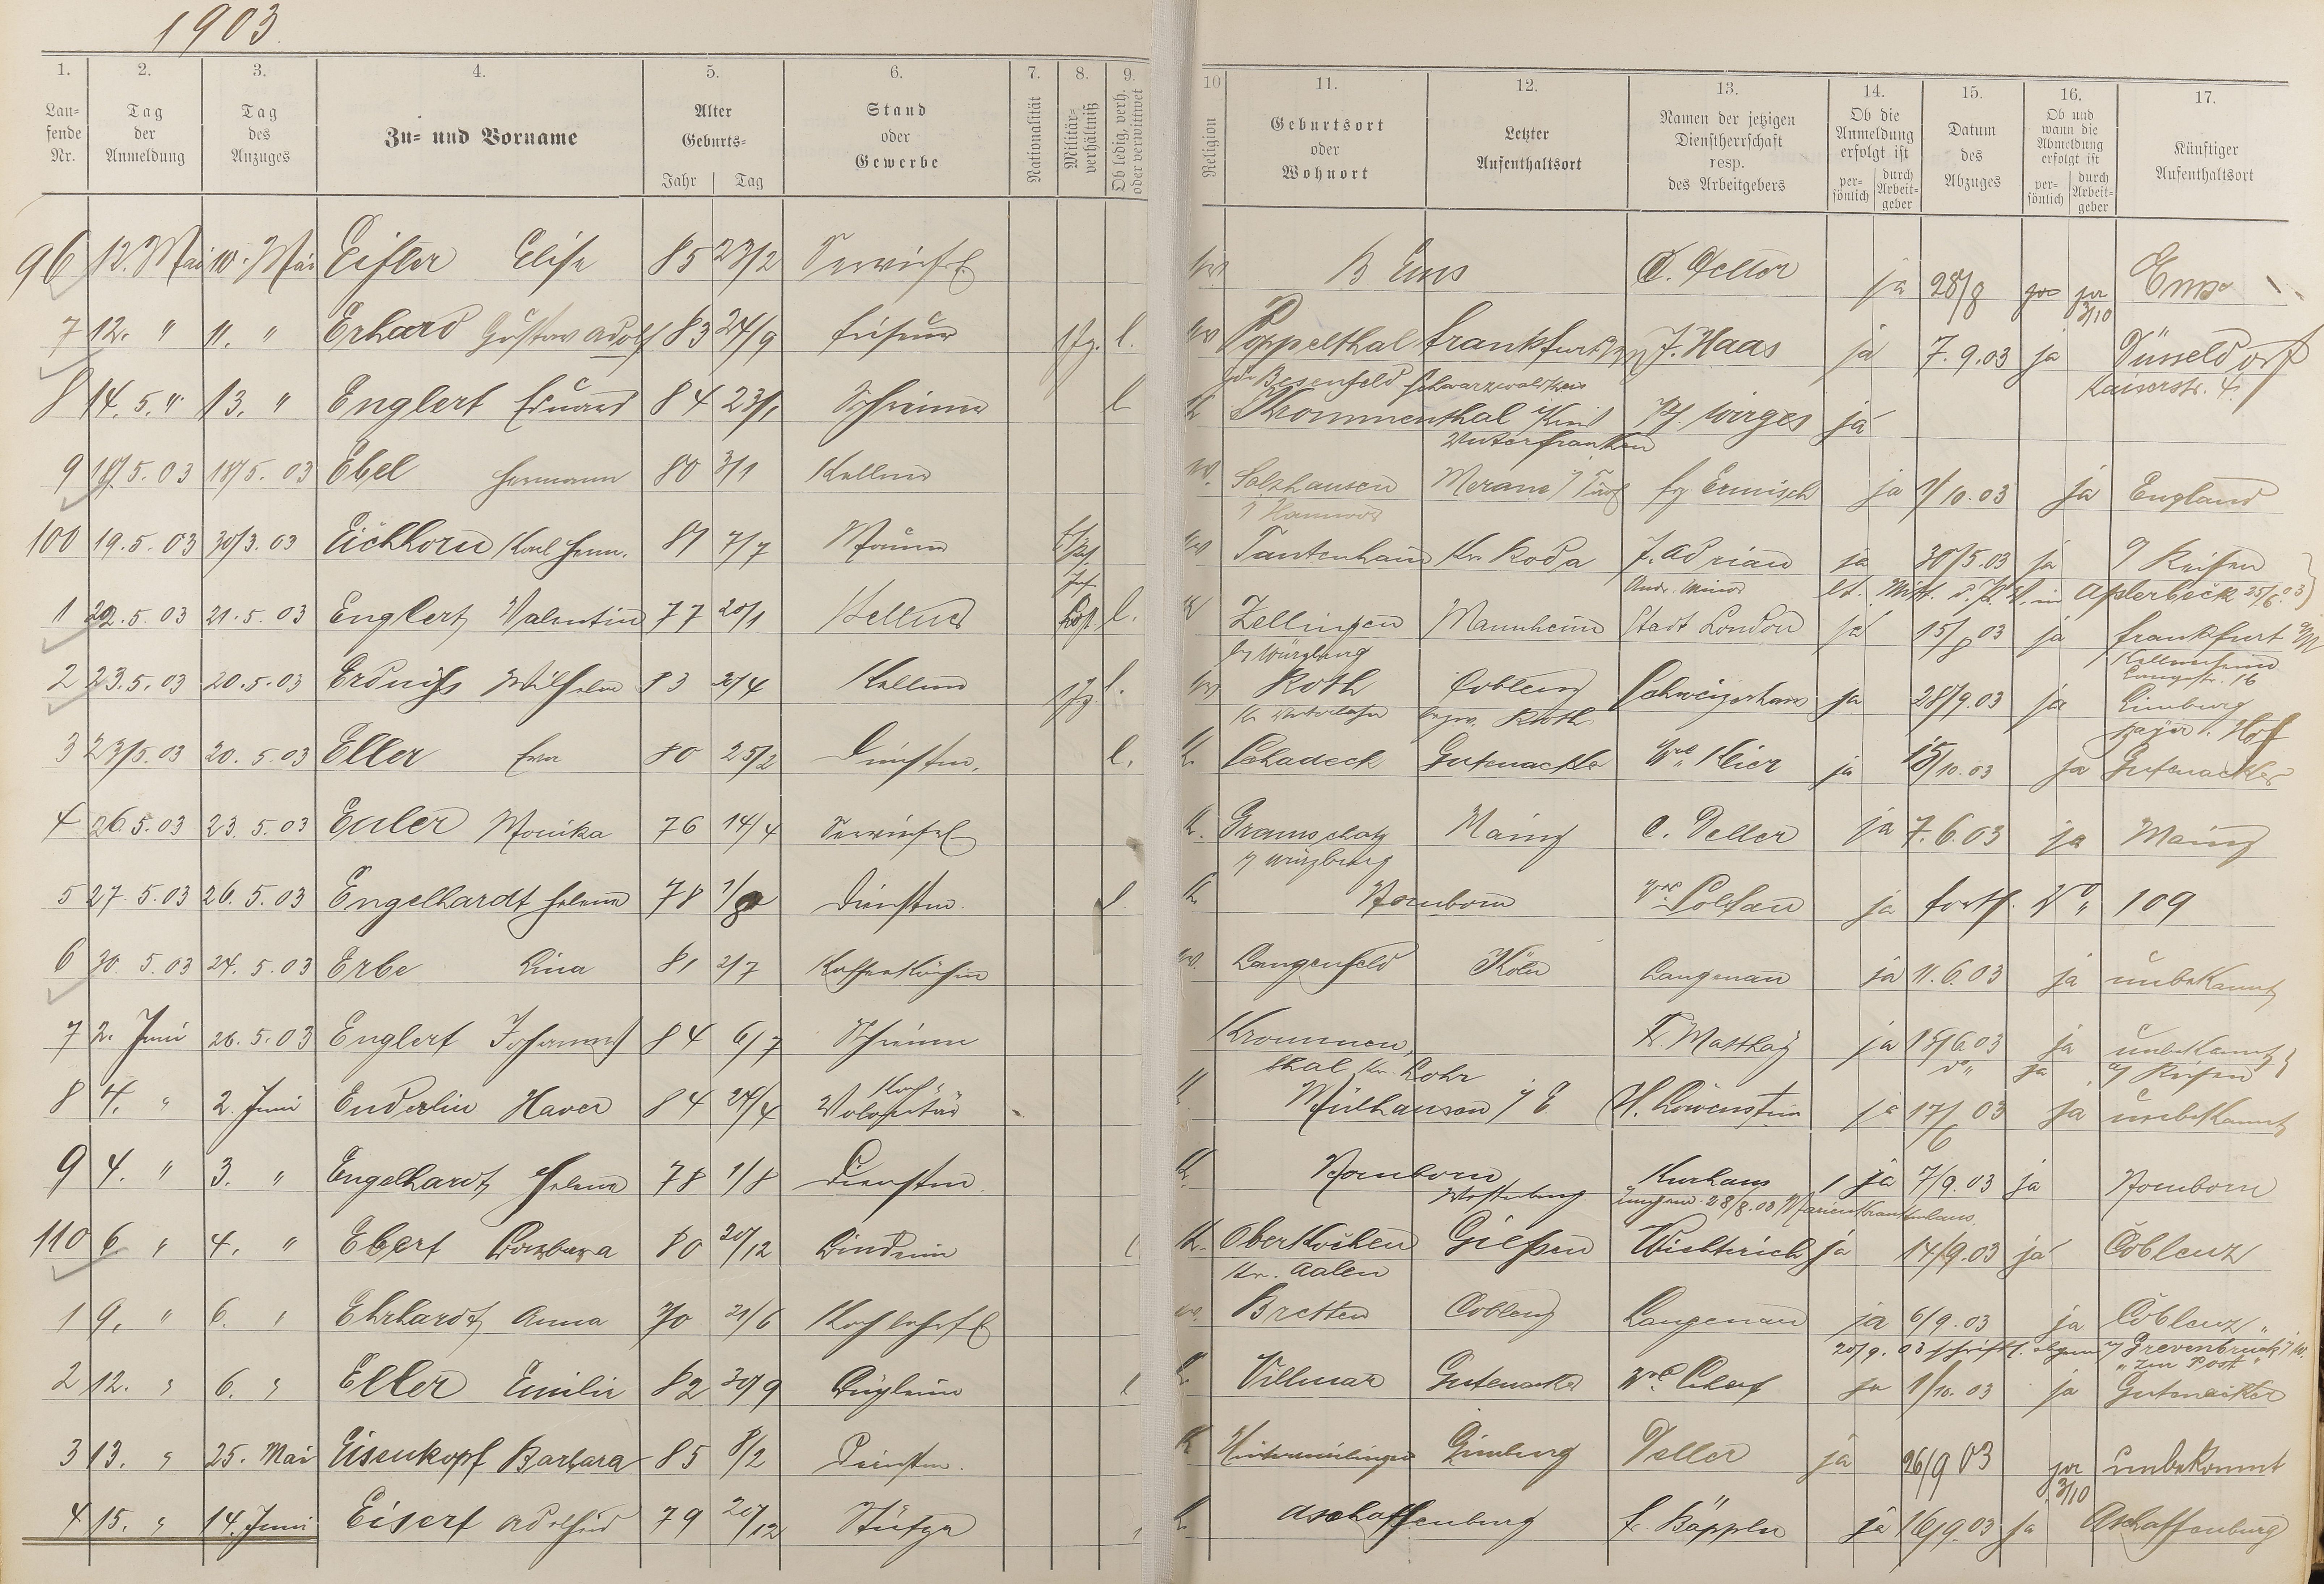 1903.
1. 2. 3. 4. 5. 6. 7. 8. 9. 10 11. 12. 13. 14. 15. 16. 17.
Lau-
fende
Nr.
Tag
der
Anmeldung
Tag
des
Anzuges
Zu- und Vorname
Alter
Geburts-
Jahr Tag
Stand
oder
Gewerbe
Nationalität
Militär-
verhältniß
Ob ledig, verh.
oder verwittwet
Religion
Geburtsort
oder
Wohnort
Letzter
Aufenthaltsort
Namen der jetzigen
Dienstherrschaft
resp.
des Arbeitgebers
Ob die
Anmeldung
erfolgt ist
per-
sönlich
durch
Arbeit-
geber
Datum
des
Abzuges
Ob und
wann die
Abmeldung
erfolgt ist
per-
sönlich
durch
Arbeit-
geber
Künftiger
Aufenthaltsort
96 12. Mai 10. Mai Eisler Elise 85 23/2 B Ems ja 28/8 ja ja Ems
3/10
7 12. " 11. " Erhard Gustav Adolf 83 24/9 Friseur l. Poppelthal Frankfurt J. Haas ja 7.9.03 ja Düsseldorf
Besenfeld Schwarzwaldkreis Kaiserstr. 4.
8 14. 5. " 13. " Englert Eduard 84 23/1 Schreiner l K Krommenthal Wirges ja
Unterfranken
9 18/5. 03 18/5. 03 Ebel Hermann 80 3/1 Kellner Salzhausen Meran i/ Tirol Ermisch ja 1/10.03 ja England
i/ Hannover
100 19.5.03 30/3.03 Eichhorn Karl Herm. 81 7/7 Tautenhain Kr. Roda J. Adrian ja 30/5.03 ja a/ Reisen
Aplerbeck 25/6.03)
1 22.5.03 21.5.03 Englert Valentin 77 20/1 Kellner l. K Zellingen Mannheim Stadt London ja 15/8 03 ja Frankfurt a/M
b/ Würzburg Kellnerheim
Langestr. 16
2 23.5.03 20.5.03 Erdniss Wilhelm 83 Kellner l. Roth Coblenz Schweizerhaus ja 28/9.03 ja Limburg
Kr. Unterlahn bezw. Roth Hof
3 23/5.03 20.5.03 Eller Eva 80 25/2 Dienstm. l. K. Schadeck Gutenacker Klier ja 15/10.03 ja Gutenacker
4 26.5.03 23.5.03 Euler Monika 76 14/4 K. Gramschatz Mainz C. Deller ja 7.6.03 ja Mainz
b/ Würzburg
5 27.5.03 26.5.03 Engelhardt Helene 78 1/8 Dienstm. l. K Nomborn ja forts. No. 109
6 30.5.03 24.5.03 Erbe Lina 81 2/7 Kaffeeköchin Langenfeld Köln Langenau ja 11.6.03 ja unbekannt
7 2. Juni 26.5.03 Englert Johannes 84 6/7 Schreiner Krommen- ja 15/6.03 ja unbekannt
thal Kr. Lohr ja a/ Reisen
8 4. " 2. Juni Enderlin Xaver 84 24/4 Koch
Volontär K. Mülhausen i/E. H. Löwenstein ja 17/6 03 ja unbekannt
9 4. " 3. " Engelhardt Helene 78 1/8 Dienstm. K. Nomborn Kurhaus ja 7/9.03 ja Nomborn
Westerburg 28/8.03 Marienkrankenhaus.
110 6 " 4. " Ebert Barbara 80 20/12 l K. Oberkochen Giessen Wichterich ja 14/9.03 ja Coblenz
Kr. Aalen
1 9. " 6. " Ehrhardt Anna 70 21/6 Bretten Coblenz Langenau ja 6/9.03 ja Coblenz
20/9.03 schriftl. Grevenbrück i/W.
"zur Post"
2 12. " 6. " Eller Emilie 82 30/9 Büglerin l K. Villmar Gutenacker ja 1/10.03 ja Gutenacker
3 13. " 25. Mai Eisenkopf Barbara 85 8/2 Dienstm. K Hintermeilingen Limburg Deller ja 26/9 03 ja unbekannt
3/10
4 15. " 14. Juni Eisert Adelheid 79 20/12 Stütze K. Aschaffenburg F. Bäppler ja 16/9.03 ja Aschaffenburg